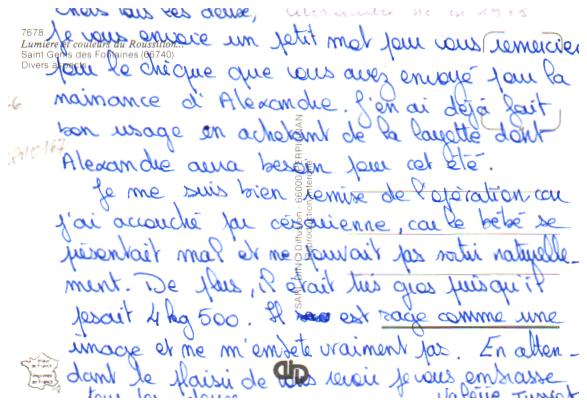 Chers tous les deux,
7678
Lumière et couleurs du Roussillon...
Saint Génis des Fontaines (66740)
Divers aspects
Je vous envoie un petit mot pour vous remercier
pour le chèque que vous avez envoyé pour la
naissance d'Alexandre. J'en ai déjà fait
bon usage en achetant de la layette dont
Alexandre aura besoin pour cet été.
Je me suis bien remise de l'opération car
j'ai accouché par césarienne, car le bébé se
présentait mal et ne pouvait pas sortir naturelle-
ment. De plus, il était très gros puisqu'il
pesait 4 kg 500. Il est sage comme une
image et ne m'embête vraiment pas. En atten-
dant le plaisir de vous revoir je vous embrasse
tous les deux
Diffusion - 66000 PERPIGNAN